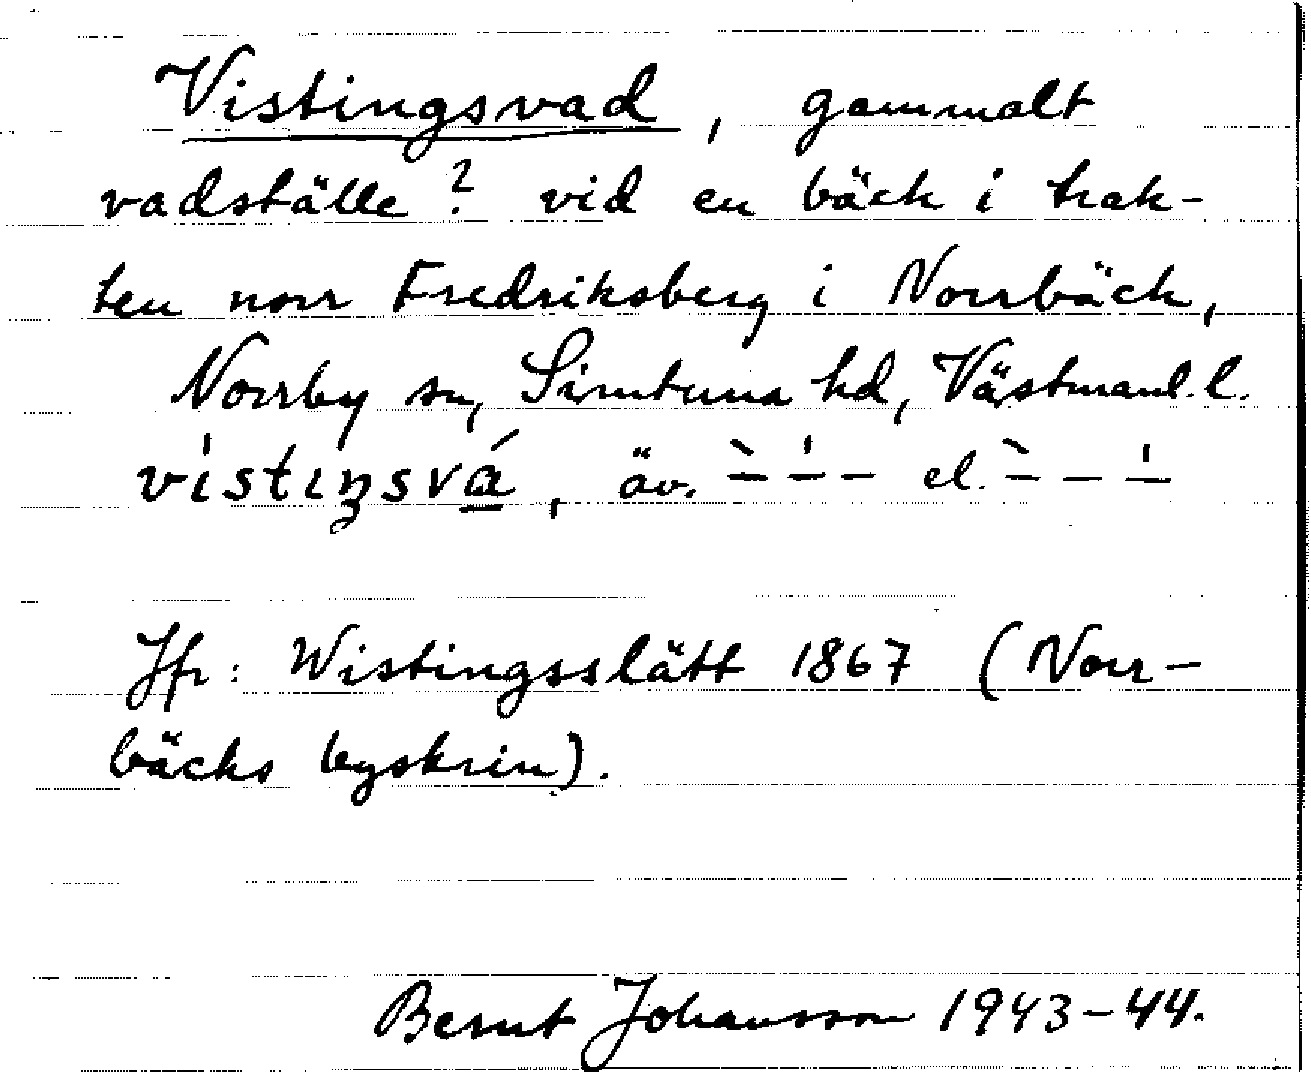 Vistingsvad, gammalt
vadställe? vid en bäck i trak-
ten norr Fredriksberg i Norrbäck,
Norrby sn, Simtuna hd, Västmanl. l.
vístıŋsvá̱, äv. ∸̀ – – el. –̀ – ∸
Jfr: Wistingsslätt 1867 (Norr-
bäcks byskrin).
Bernt Johansson 1943-44.